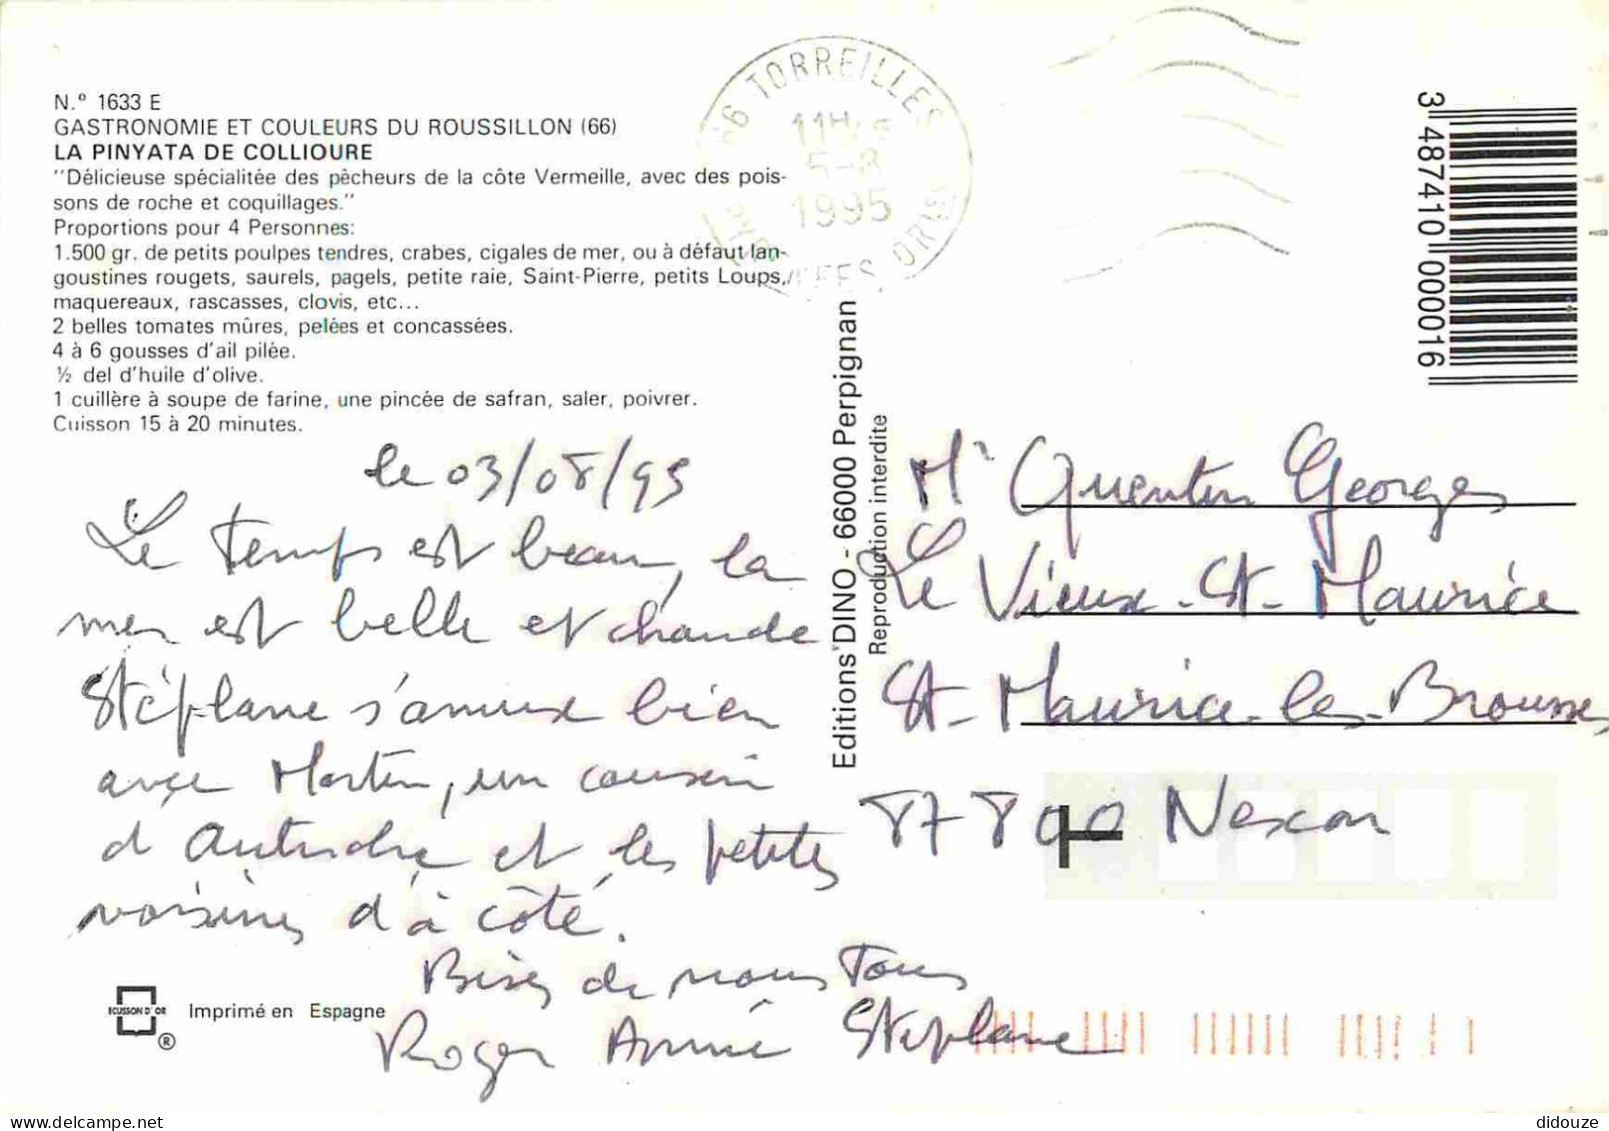 N.º 1633 E
GASTRONOMIE ET COULEURS DU ROUSSILLON (66)
LA PINYATA DE COLLIOURE
"Délicieuse spécialitée des pêcheurs de la côte Vermeille, avec des pois-
sons de roche et coquillages."
Proportions pour 4 Personnes:
1.500 gr. de petits poulpes tendres, crabes, cigales de mer, ou à défaut lan-
goustines rougets, saurels, pagels, petite raie, Saint-Pierre, petits Loups,
maquereaux, rascasses, clovis, etc...
2 belles tomates mûres, pelées et concassées.
4 à 6 gousses d'ail pilée.
½ del d'huile d'olive.
1 cuillère à soupe de farine, une pincée de safran, saler, poivrer.
Cuisson 15 à 20 minutes.
le 03/08/95
Le temps est beau, la
mer est belle et chaude
Stéphane s'amuse bien
avec Martin, un cousin
d'Autriche et les petites
voisines d'à côté.
Bises de nous Tous
Roger Annie Stéphane
ECUSSON D'OR
®
Imprimé en Espagne
Editions DINO - 66000 Perpignan
Reproduction interdite
66 TORREILLES
11H
5-8
1995
PYRENEES ORles
3 487410 000016
Mr Quentin Georges
Le Vieux-St-Maurice
St-Maurice-les-Brousses
87800 Nexon
T
didouze